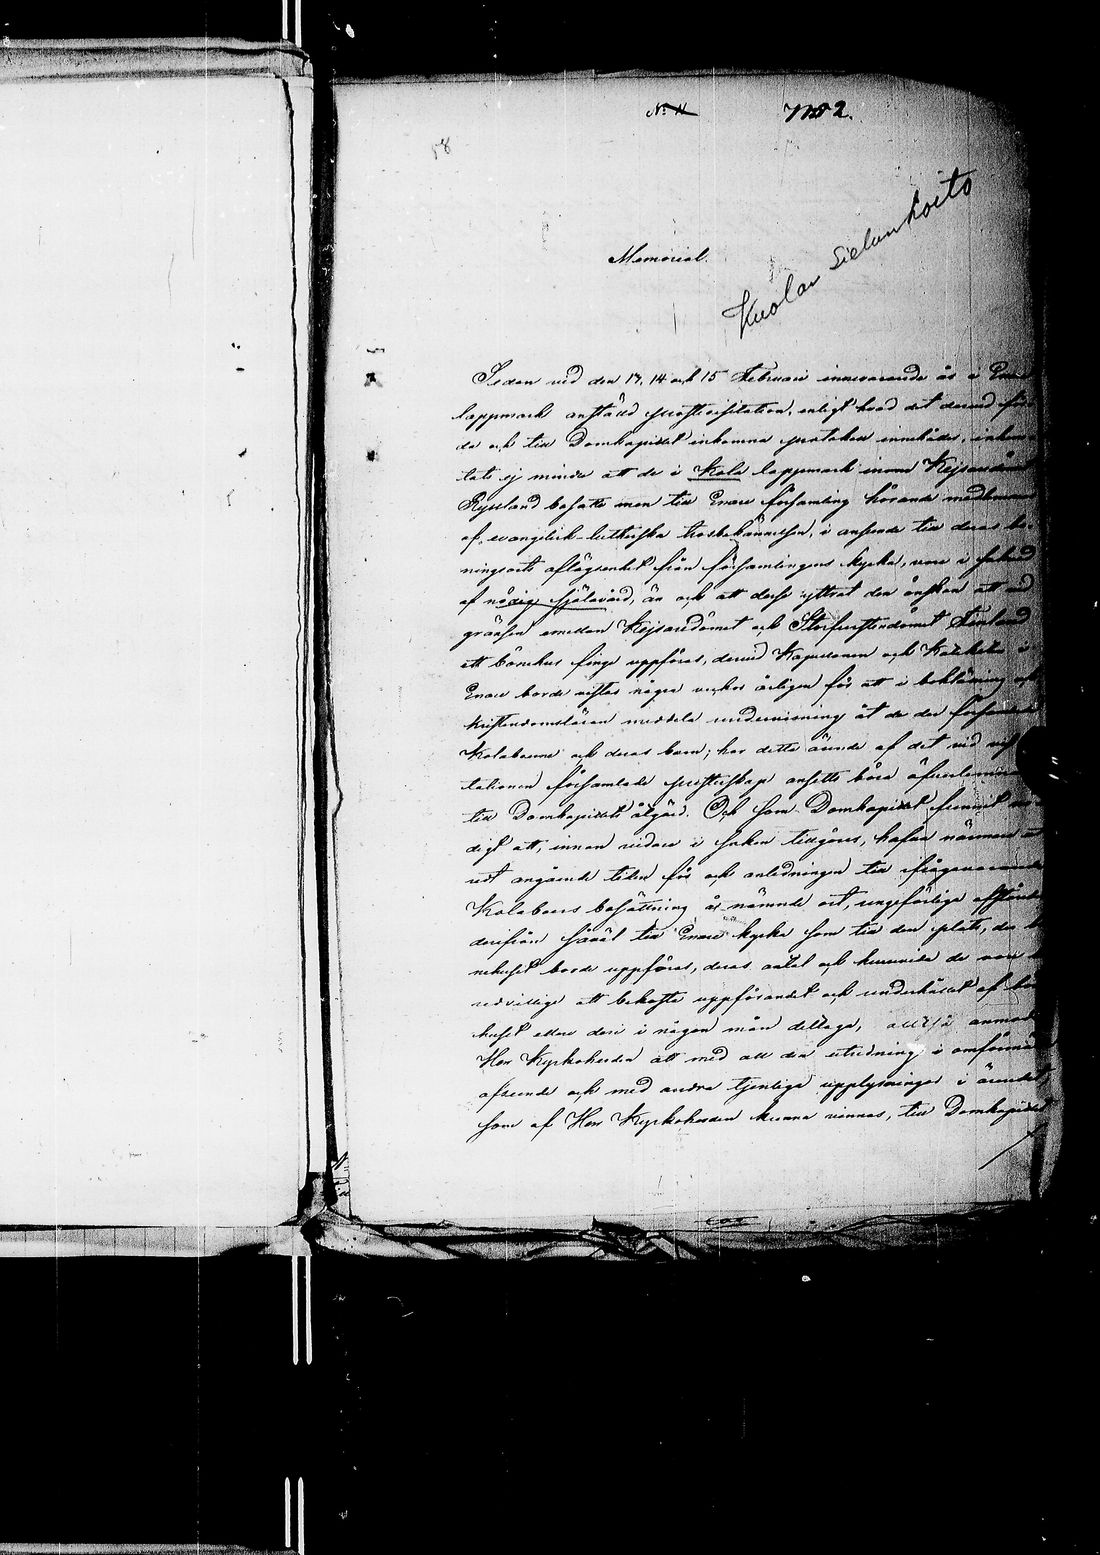 N:o 11
N:o 2.
58
Kuolan Sielunhoito
Memorial.
Sedan vid den 13, 14 och 15 Februari innevarande år i Enare
lappmark anstäld prostvisitation, enligt hvad det dervid förda
da och till Domkapitlet inkomna protokoll innehåller,
tats ej mindre att de i Kola lappmark inom Kejsaredömet
Ryssland bosatte men till Enare församling hörande medlemmar
af evangelisk-lutherska trosbekännelsen, i anseende till deras bo-
ningsorts aflägsenhet från församlingens kyrka, vore i saknad
af nödig själavård, än och att desse yttrat den önskan att vid
gränsen emellan Kejsaredömet och Storfurstendömet Finland
ett bönehus finge uppföras, dervid Kapellanen och Kateketen i
Enare borde vistas några veckor årligen för att i bokläsning och
kristendomsläran meddela undervisning åt de der församlade
Kolaboerne och deras barn; har detta ärende af det vid visi-
tationen församlade presterskap ansetts böra öfverlemnas
till Domkapitlets åtgärd. Och som Domkapitlet funnit nö-
digt att, innan vidare i saken tillgöres, hafva närmare
redt angående tiden för och anledningen till ifrågavarande
Kolaboers bosättning å nämnde ort, ungefärliga afståndet
derifrån såväl till Enare kyrka som till den plats, der bö-
nehuset borde uppföras, deras antal och huruvida de vore
redvillige att bekosta uppförandet och underhållet af böne-
huset eller deri i någon mån deltaga, alltså anmodas
Herr Kyrkoherden att med all den utredning i omförmälde
afseende och med andra tjenliga upplysningar i ärendet,
som af Herr Kyrkoherden kunna vinnas, till Domkapitlet